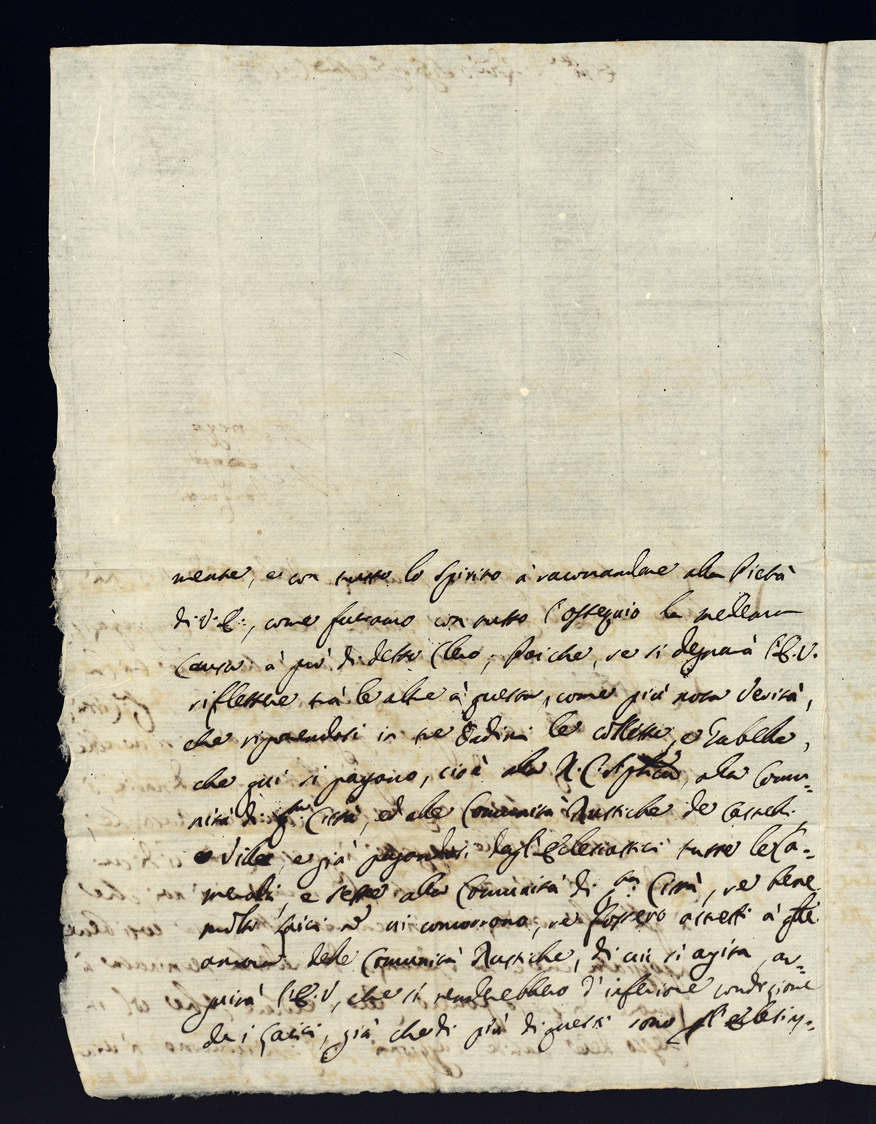 mente, e con tutto lo Spirito à racomandare alla Pietà
di V. E., come facciamo con tutto l'ossequio la medema
Causa à prò di detto Clero, Poiche, se si degnarà l'E. V.
riflettere trà le altre à questa, come più nota Verità,
che ripartendosi in tre Ordini le collette, e Gabelle,
che qui si pagono, cioè alla R. C. Aplica, alla Comu-
nità di qta Città, ed alle Comunità Rustiche de Castelli,
e Ville, e già pagandosi dagl'Eclesiastici tutte le Ca-
merali, e tutte alla Comunità di qta Città, se bene
molti laici nō vi concorrono, se fossero astretti à qlle
ancora dele Comunità Rustiche, di cui si agita, ar-
guirà l'E. V., che si renderebbero d'inferiore condizione
de i Laici, già che di più di questi sono gl'Eclesias-